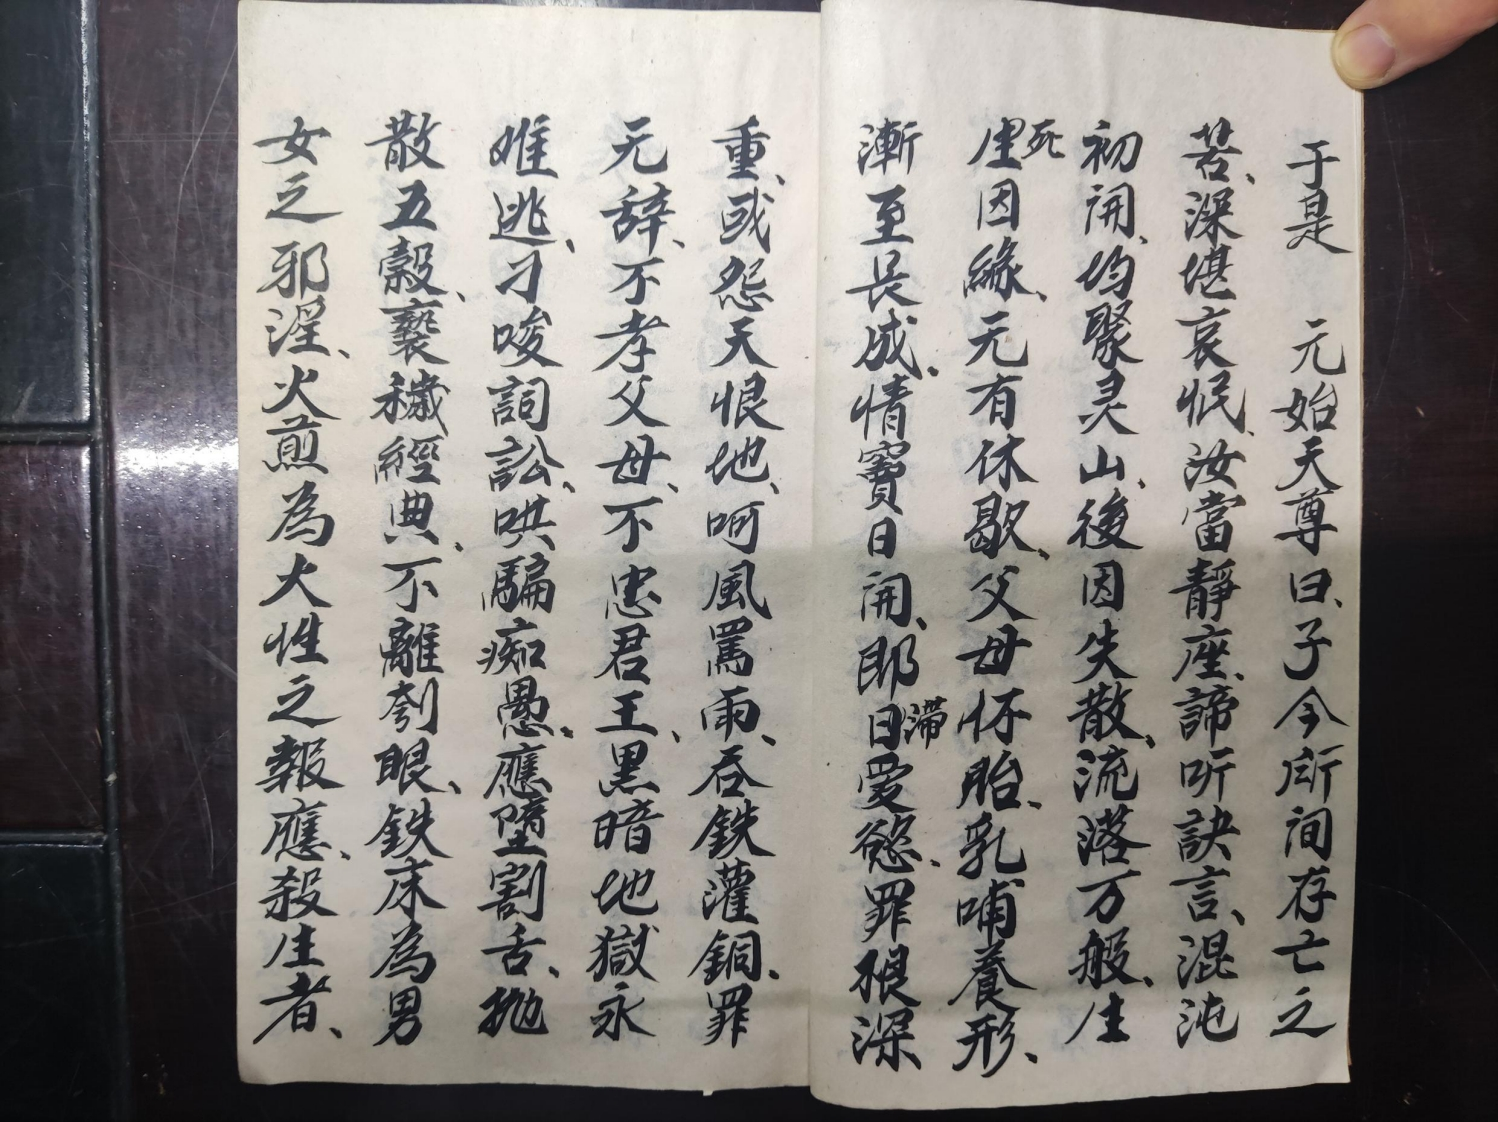 于是　元始天尊曰、子今所间存亡之
苦、深堪哀悯、汝當靜座、諦听訣言、混沌
初闲、均聚灵山、後因失散、流落万般、生
死
生因緣、元有休歇、父母怀胎、乳哺養形、
漸至長成、情竇日闲、耶日愛慾、罪根深
滞
重、或怨天恨地、呵風罵雨、吞鉄灌銅、罪
元辞、不孝父母、不忠君王、黑暗地獄永
难逃、刁唆詞訟、哄騙痴愚、應墮割舌、抛
散五穀、褻穢經典、不離刳眼、鉄床為男
女之邪淫、火煎為大性之報應、殺生者、